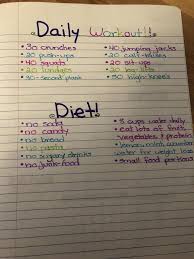 Daily Workout!!
• 30 crunches
• 20 push-ups
• 40 squats
• 20 lunges
• 30-second plank
• 40 jumping jacks
• 20 calf-raises
• 20 sit ups
• 20 leg-lifts
• 30 high-knees
Diet!
• no soda
• no candy
• no bread
• no pasta
• no sugary drinks
• no junk-food
• 8 cups water daily
• eat lots of fruit,
vegetables & protein
• lemon, mint, cucumber
water for weight loss
• small food portions